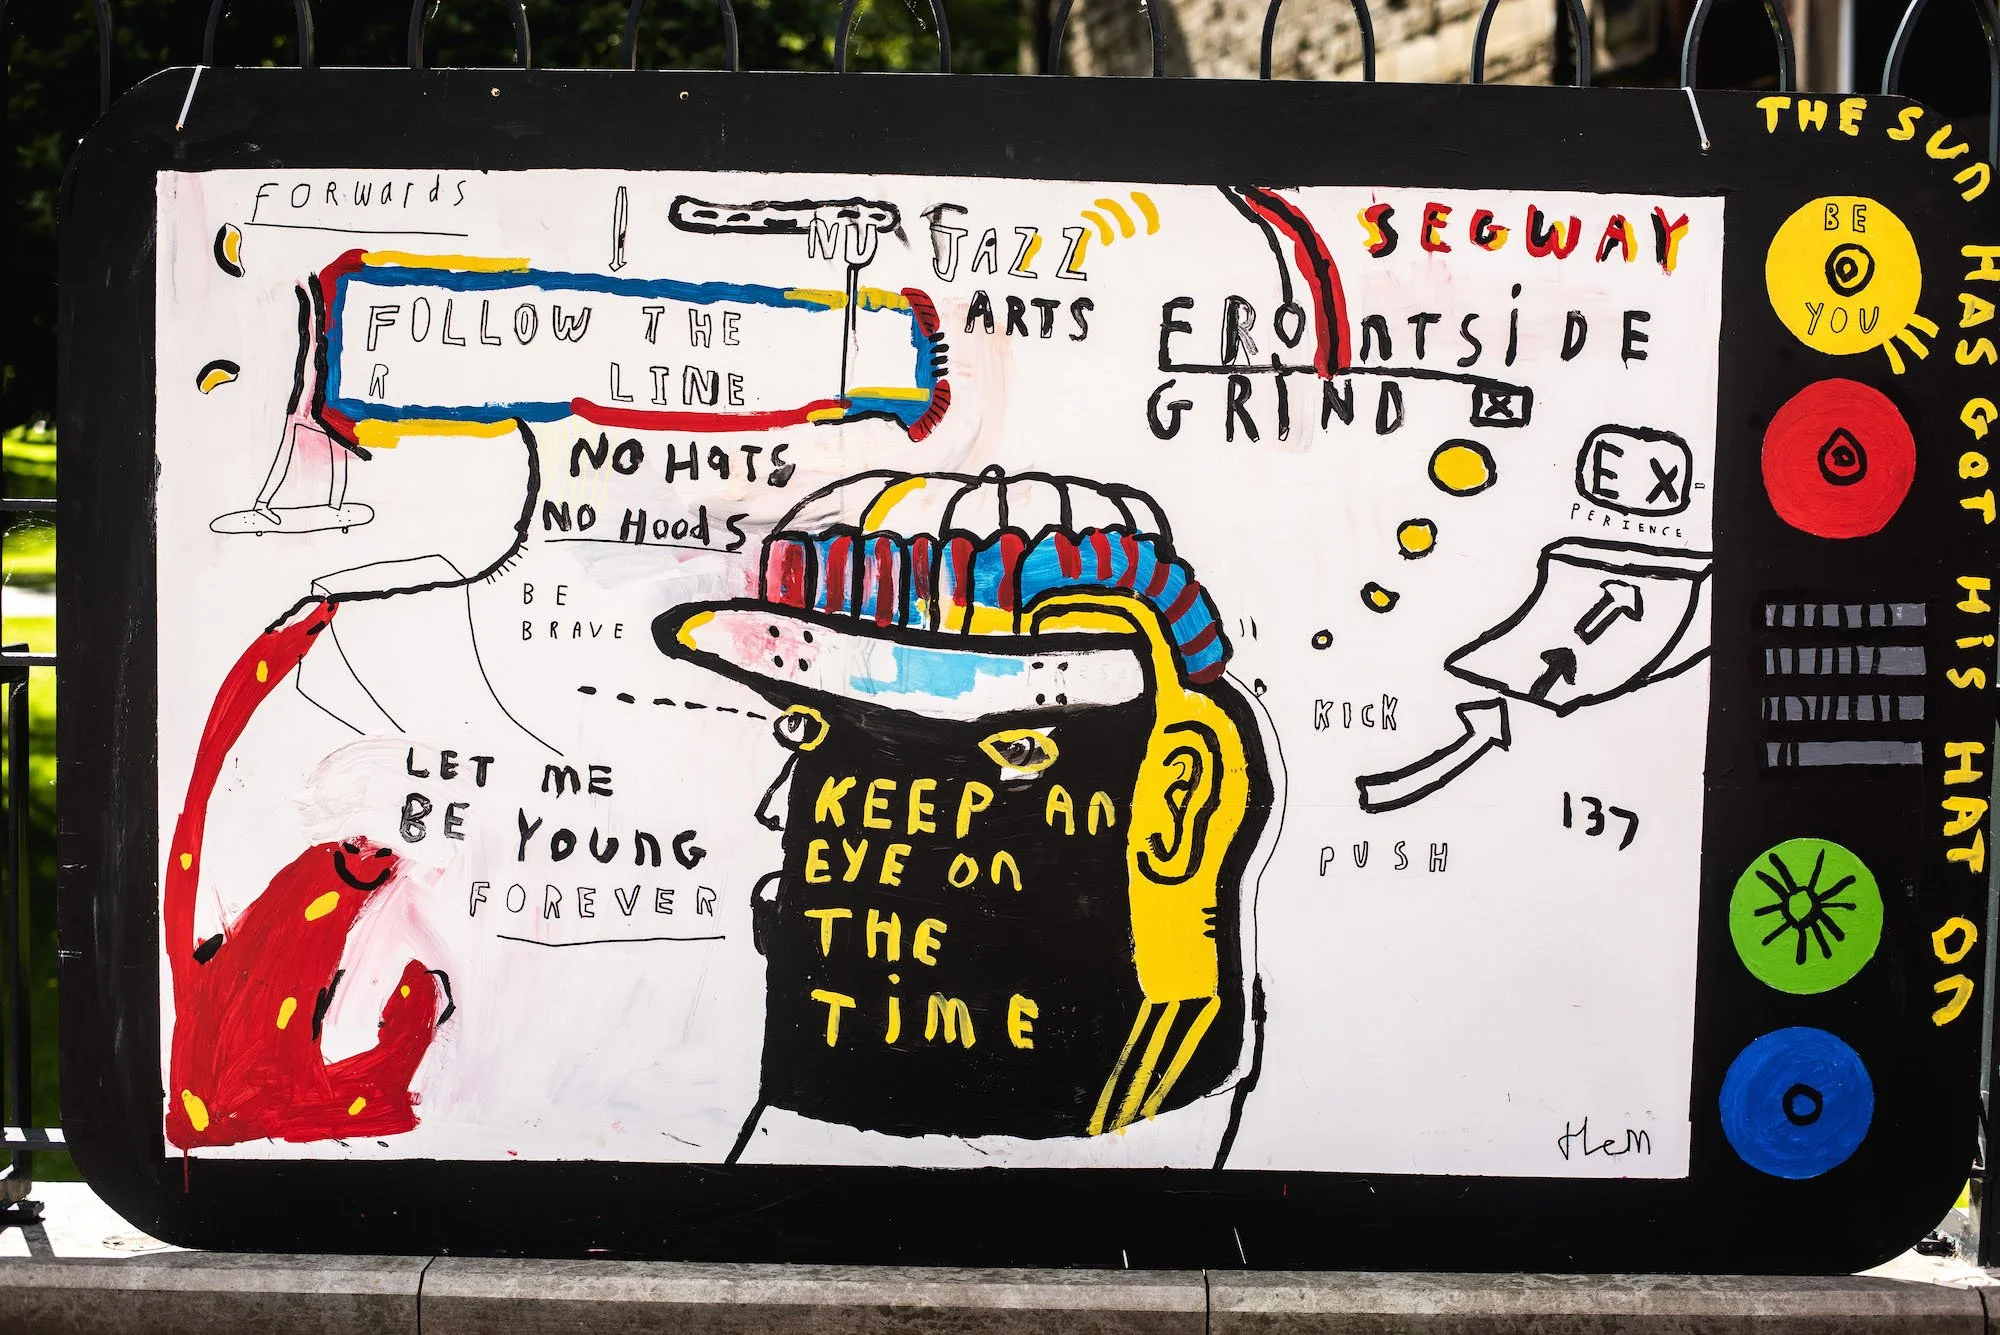 FORWards
NU JAZZ
ARTS
SEGWAY
FROnTSiDE
GRiND
FOLLOW THE
R LINE
NO HaTS
NO HoodS
BE
BRAVE
EX
PERIENCE
LET ME
BE YOUnG
FOREVER
KEEP An
EYE On
THE
TiME
KICK
PUSH
137
HeM
THE SUn HAS GOT HiS HAT On
BE
YOU